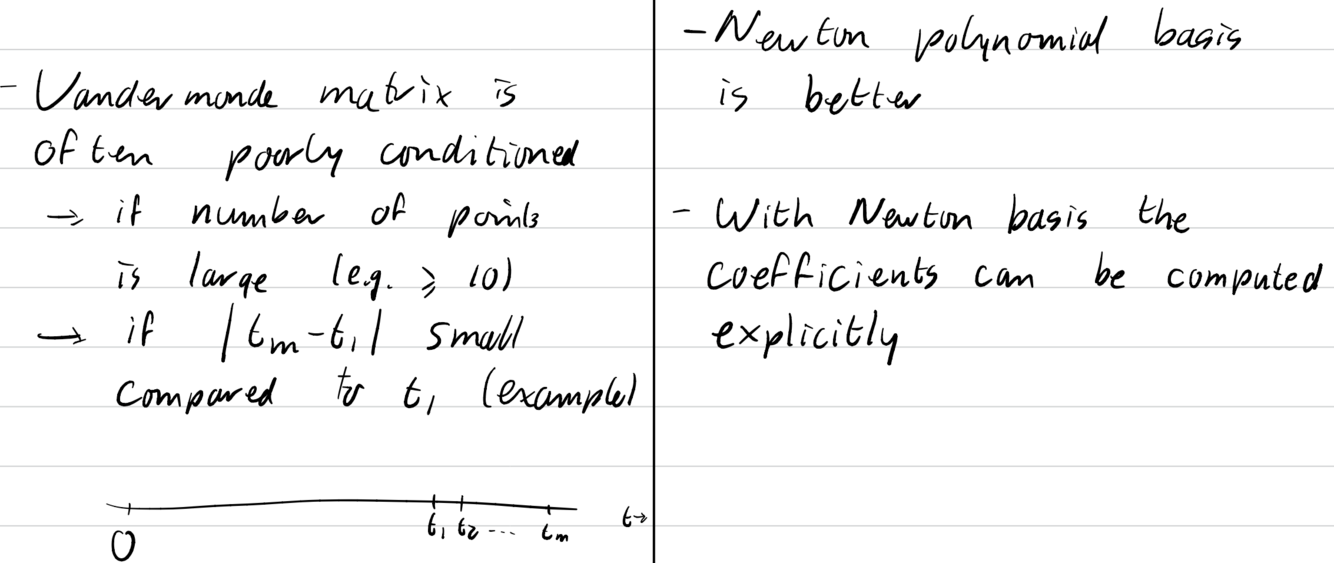 - Vandermonde matrix is
often poorly conditioned
→ if number of points
is large (e.g. ⩾ 10)
→ if |tₘ-t₁| small
compared to t₁ (example)
0 t₁ t₂ ... tₘ t→
- Newton polynomial basis
is better
- With Newton basis the
coefficients can be computed
explicitly